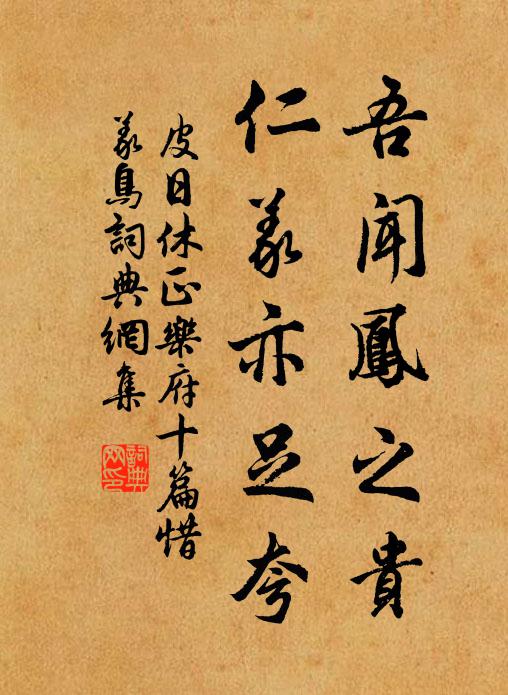 吾聞鳳之貴
仁義亦足夸
皮日休正樂府十篇惜
義鳥詞典網集
詞典網印